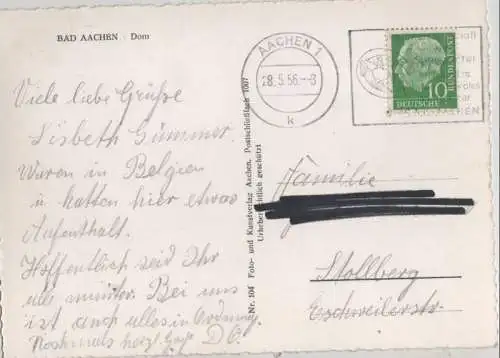 BAD AACHEN Dom
Viele liebe Grüße
Lisbeth Gümmer.
Waren in Belgien
u. hatten hier etwas
Aufenthalt.
Hoffentlich seid Ihr
alle munter. Bei uns
ist auch alles in Ordnung
Nochmals herzl. D. O.
Nr. 104 Foto- und Kunstverlag Aachen, Postschließfach 1007
Urheberrechtlich geschützt
AACHEN 1
28.5.56.-8
k
AACHEN
10
DEUTSCHE BUNDESPOST
Familie
Stollberg
Eschweilerstr.